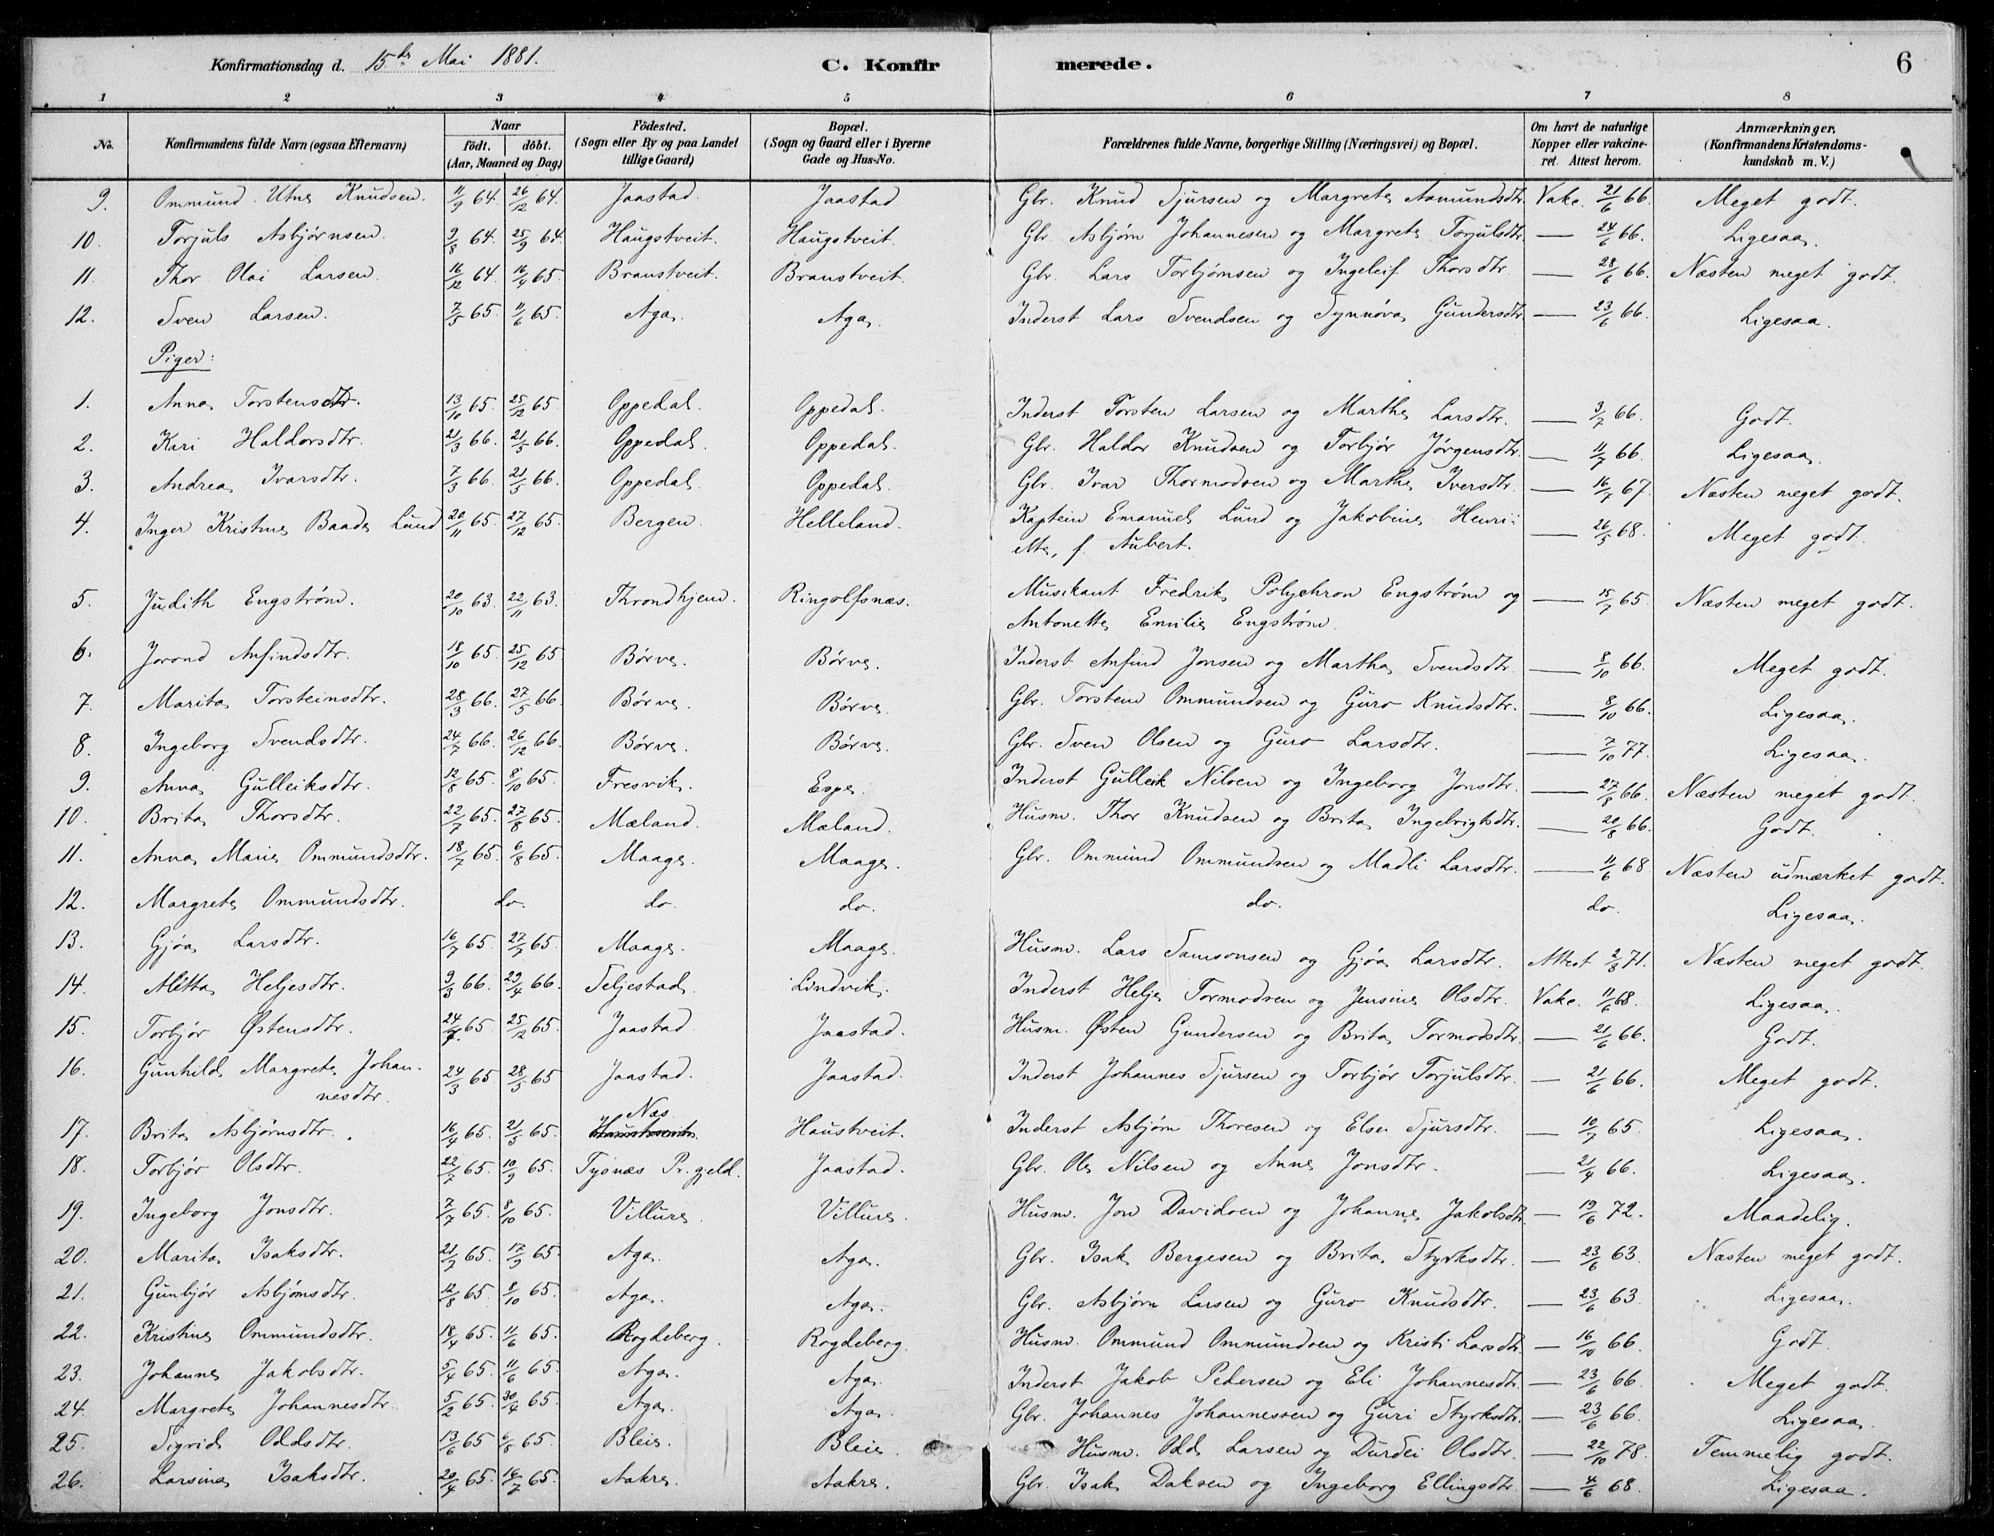 Konfirmationsdag d. 15de Mai 1881. C. Konfirmerede. 6
1 2 3 4 5 6 7 8
No. Konfirmandens fulde Navn (ogsaa Efternavn) Naar födt. döbt. (Aar, Maaned og Dag) Födested. (Sogn eller By og paa Landet tillige Gaard) Bopæl. (Sogn og Gaard eller i Byerne Gade og Hus-No. Forældrenes fulde Navne, borgerlige Stilling (Næringsvei) og Bopæl. Om havt de naturlige Kopper eller vakcineret. Attest herom. Anmærkninger, (Konfirmandens Kristendomskundskab m. V.)
9. Ommund Utne Knudsen. 11/9 64. 26/12 64. Jaastad. Jaastad Gbr. Knud Sjursen og Margrete Aamundsdtr. Vakc. 21/6 66. Meget godt.
10. Torjuls Asbjørnsen. 9/8 64. 25/9 64. Haugstveit. Haugstveit. Gbr. Asbjørn Johannesen og Margrete Torjulsdtr. — 24/6 66. Ligesaa.
11. Thor Olai Larsen. 16/12 64. 16/4 65. Branstveit. Branstveit. Gbr. Lars Torbjørnsen og Ingeleif Thorsdtr. — 28/6 66. Næsten meget godt.
12. Sven Larsen. 7/5 65. 11/6 65. Aga. Aga. Inderst Lars Svendsen og Synnøva Gundersdtr. — 23/6 66. Ligesaa.
Piger:
1. Anna Torstensdtr. 13/10 65. 25/12 65. Oppedal. Oppedal. Inderst Torsten Larsen og Marthe Larsdtr. — 3/7 66. Godt.
2. Kari Haldorsdtr. 21/3 66. 21/5 66. Oppedal. Oppedal. Gbr. Haldor Knudsen og Torbjør Jørgensdtr. — 11/7 66. Ligesaa.
3. Andrea Ivarsdtr. 7/3 66. 21/5 66. Oppedal. Oppedal. Gbr. Ivar Thormodsen og Marthe Iversdtr. — 16/7 67. Næsten meget godt.
4. Inger Kristine Baade Lund 20/11 65. 27/12 65. Bergen. Helleland. Kaptein Emanuel Lund og Jakobine Henri- — 26/5 68. Meget godt.
ette, f. Aubert.
5. Judith Engstrøm. 20/10 63. 22/11 63. Throndhjem. Ringolfsnæs. Musikant Fredrik Polychron Engstrøm og — 15/7 65. Næsten meget godt.
Antonette Emilie Engstrøm.
6. Jorond Anfindsdtr. 18/10 65. 25/12 65 Børve. Børve. Inderst Anfind Jonsen og Martha Svendsdtr. — 8/10 66. Meget godt.
7. Marita Torsteinsdtr. 28/3 66. 27/5 66. Børve. Børve. Gbr. Torstein Ommundsen og Guro Knudsdtr. — 8/10 66. Ligesaa.
8. Ingeborg Svendsdtr. 24/7 66. 26/12 66. Børve. Børve. Gbr. Sven Olsen og Guro Larsdtr. — 7/10 77. Ligesaa.
9. Anna Gulleiksdtr. 12/8 65. 8/10 65. Fresvik. Espe. Inderst Gulleik Nilsen og Ingeborg Jonsdtr. — 27/8 66. Næsten meget godt.
10. Brita Thorsdtr. 22/7 65. 27/8 65. Mæland. Mæland. Husm. Thor Knudsen og Brita Ingebrigtsdtr. — 20/8 66. Godt.
11. Anna Marie Ommundsdtr. 18/7 65. 6/8 65. Maage. Maage. Gbr. Ommund Ommundsen og Madli Larsdtr. — 11/6 68. Næsten udmærket godt.
12. Margrete Ommundsdtr. do. do. do. do. do. Ligesaa.
13. Gjøa Larsdtr. 16/7 65. 27/7 65. Maage. Maage. Husm. Lars Samsonsen og Gjøa Larsdtr. Attest 2/8 71. Næsten meget godt.
14. Alitta Heljesdtr. 9/3 66. 29/4 66. Seljestad. Lindvik. Inderst Helje Tormodsen og Jensine Olsdtr. Vakc. 11/6 68. Ligesaa.
15. Torbjør Østensdtr. 24/7 65. 25/12 65. Jaastad Jaastad. Husm. Østen Gundersen og Brita Tormodsdtr. — 21/6 66. Godt.
16. Gunhild Margrete Johan- 24/3 65. 28/5 65 Jaastad. Jaastad. Inderst Johannes Sjursen og Torbjør Torjulsdtr. — 21/6 66. Meget godt.
nesdtr.
17. Brita Asbjørnsdtr. 16/4 65. 21/5 65. Næs. Haustveit. Inderst Asbjørn Thoresen og Else Sjursdtr. — 10/7 65. Ligesaa.
18. Torbjør Olsdtr. 22/7 65. 10/9 65. Tysnæs Pr.gjeld. Jaastad. Gbr. Ole Nilsen og Anne Jonsdtr. — 21/4 66. Ligesaa.
19. Ingeborg Jonsdtr. 7/7 65. 8/10 65. Villure. Villure. Husm. Jon Davidsen og Johanne Jakobsdtr. — 19/6 72. Maadelig.
20. Marita Isaksdtr. 21/7 65. 17/9 65. Aga. Aga. Gbr. Isak Bergesen og Brita Styrksdtr. — 23/6 63. Næsten meget godt.
21. Gunbjør Asbjørnsdtr. 12/8 65. 8/10 65. Aga. Aga. Gbr. Asbjørn Larsen og Guro Knudsdtr. — 23/6 63. Ligesaa.
22. Kristine Ommundsdtr. 18/4 65. 11/6 65. Rogdeberg. Rogdeberg. Husm. Ommund Ommundsen og Kristi Larsdtr. — 16/10 66. Godt.
23. Johanne Jakobsdtr. 5/4 65. 11/6 65. Aga. Aga. Inderst Jakob Pedersen og Eli Johannesdtr. — 23/6 66. Meget godt.
24. Margrete Johannesdtr. 5/2 65. 30/4 65. Aga. Aga. Gbr. Johannes Johannessen og Guri Styrksdtr. — 23/6 66. Ligesaa.
25. Sigrid Oddsdtr. 13/6 65 6/8 65. Bleie. Bleie. Husm. Odd Larsen og Durdei Olsdtr. — 22/10 78. Temmelig godt.
26. Larsina Isaksdtr. 20/4 65. 16/7 65. Aakre. Aakre. Gbr. Isak Daksen og Ingeborg Ellingsdtr. — 4/6 68. Ligesaa.